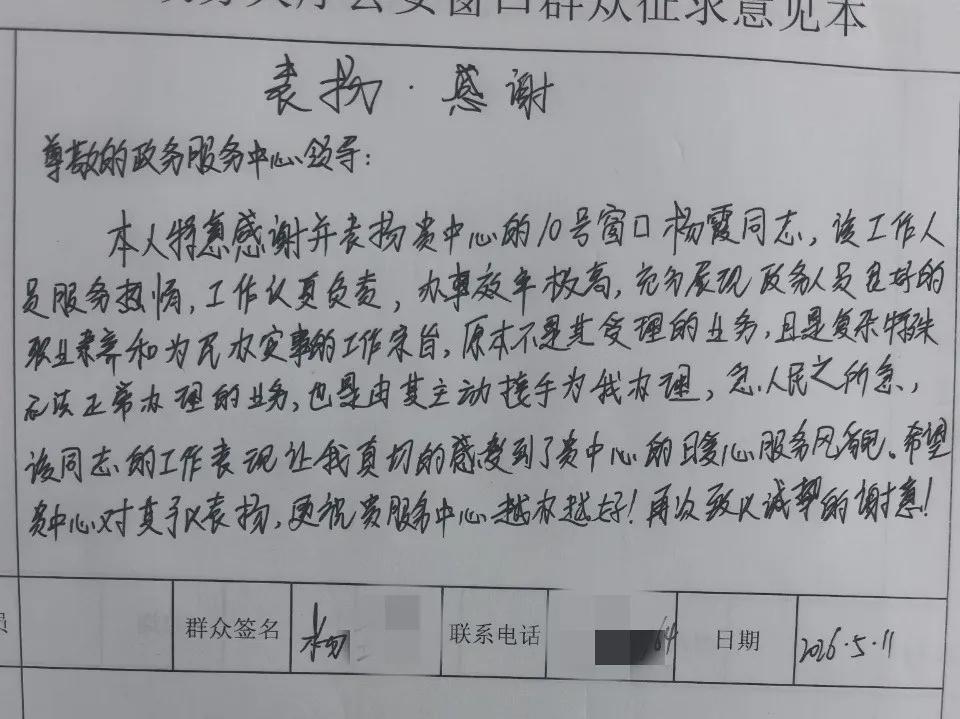 政务大厅公安窗口群众征求意见本
表扬·感谢
尊敬的政务服务中心领导：
本人特意感谢并表扬贵中心的10号窗口杨霞同志，该工作人
员服务热情，工作认真负责，办事效率极高，充分展现政务人员良好的
职业素养和为民办实事的工作宗旨，原本不是其受理的业务，且是复杂特殊
无法正常办理的业务，也是由其主动接手为我办理，急人民之所急，
该同志的工作表现让我真切的感受到了贵中心的暖心服务风貌。希望
贵中心对其予以表扬，更祝贵服务中心越办越好！再次致以诚挚的谢意！
员 群众签名 杨 联系电话 64 日期 2026.5.11